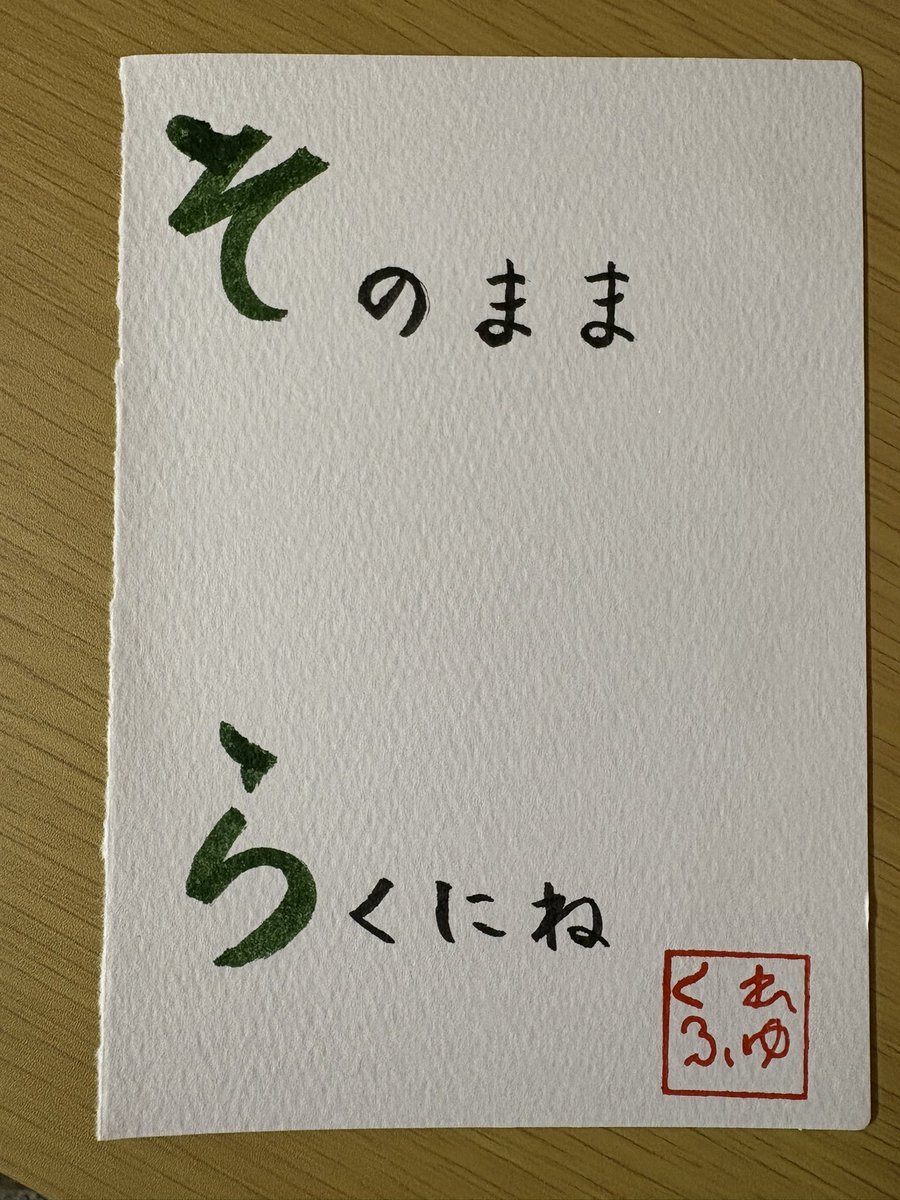 そのまま
らくにね
く
ふゆ